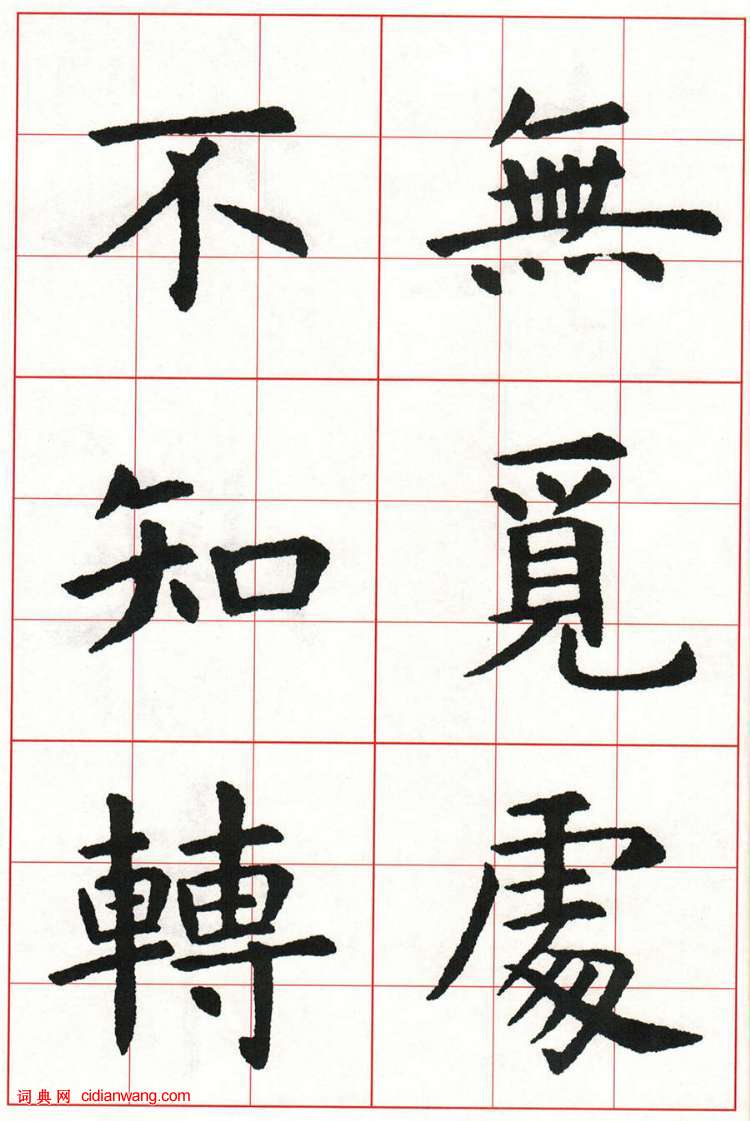 無覓處
不知轉
词典网 cidianwang.com